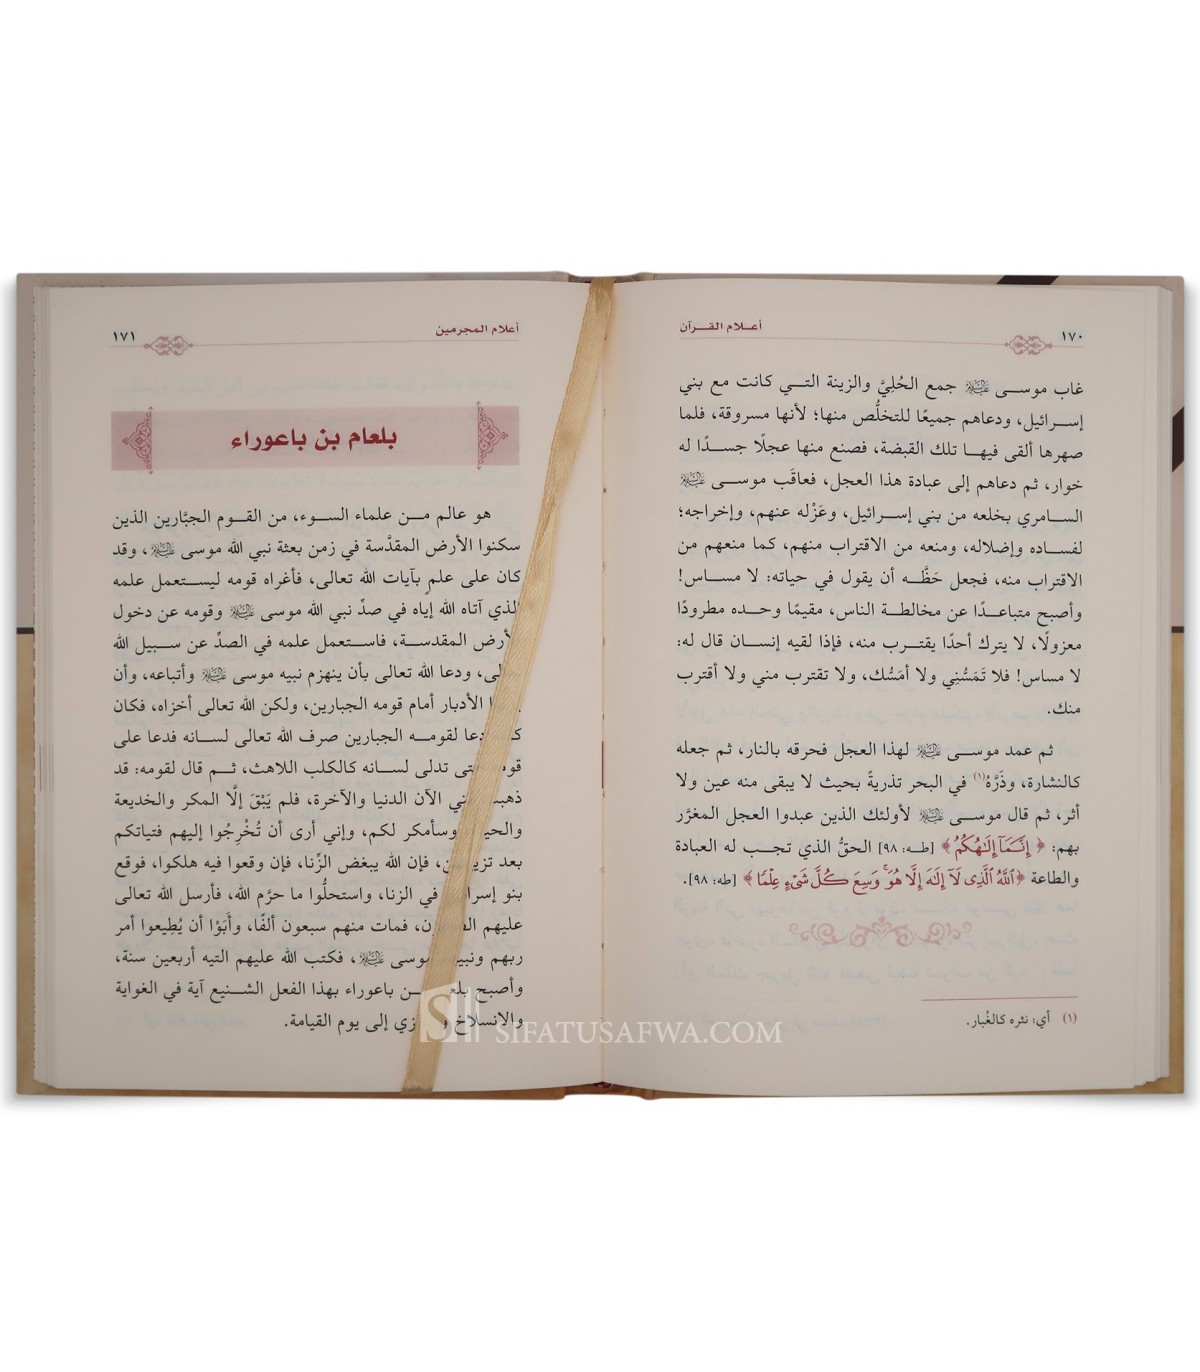 ١٧٠
أعـلام القـــرآن
غاب موســى عليه السلام جمع الحُلِيَّ والزينة التــي كانت مع بني
إســرائيل، ودعاهم جميعًا للتخلُّص منها؛ لأنها مسروقة، فلما
صهرها ألقى فيهــا تلك القبضة، فصنع منها عجلًا جســدًا له
خوار، ثم دعاهم إلى عبادة هذا العجل، فعاقَب موســى عليه السلام
السامري بخلعه من بني إســرائيل، وعَزْله عنهم، وإخراجه؛
لفساده وإضلاله، ومنعه من الاقتراب منهم، كما منعهم من
الاقتراب منه، فجعل حَظَّــه أن يقول في حياته: لا مســاس!
وأصبح متباعدًا عن مخالطة الناس، مقيمًا وحــده مطرودًا
معزولًا، لا يترك أحدًا يقتــرب منه، فإذا لقيه إنســان قال له:
لا مساس! فلا تَمَسُّنِي ولا أمَسُّك، ولا تقترب مني ولا أقترب
منك.
ثم عمد موســى عليه السلام لهذا العجل فحرقه بالنار، ثم جعله
كالنشارة، وذَرَّهُ(١) في البحر تذريةً بحيث لا يبقى منه عين ولا
أثر، ثم قال موســى عليه السلام لأولئك الذين عبدوا العجل المغرَّر
بهم: ﴿ إِنَّمَآ إِلَٰهُكُمُ ﴾ [طـه: ٩٨] الحقُّ الذي تجــب له العبادة
والطاعة ﴿ٱللَّهُ ٱلَّذِى لَآ إِلَٰهَ إِلَّا هُوَ ۚ وَسِعَ كُلَّ شَىْءٍ عِلْمًا ﴾ [طه: ٩٨].
(١) أي: نثره كالغُبار.
أعلام المجرمين
١٧١
بلعام بن باعوراء
هو عالم مــن علماء الســوء، من القوم الجبَّارين الذين
سكنوا الأرض المقدَّسة في زمن بعثة نبي الله موسى عليه السلام، وقد
كان على علمٍ بآيات الله تعالى، فأغراه قومه ليســتعمل علمه
الذي آتاه الله إياه في صدِّ نبي الله موسى عليه السلام وقومه عن دخول
لأرض المقدســة، فاســتعمل علمه في الصدِّ عن سبيل الله
ـالى، ودعا الله تعالى بأن ينهزم نبيه موسى عليه السلام وأتباعه، وأن
ـا الأدبار أمام قومه الجبارين، ولكن الله تعالى أخزاه، فكان
دعا لقومــه الجبارين صرف الله تعالى لسانه فدعا على
ـتى تدلى لســانه كالكلب اللاهث، ثــم قال لقومه: قد
ذهبـ ـني الآن الدنيا والآخرة، فلم يَبْقَ إلَّا المكر والخديعة
والحيـ وسأمكر لكم، وإني أرى أن تُخْرِجُوا إليهم فتياتكم
بعد تزيـ ـن، فإن الله يبغض الزِّنا، فإن وقعوا فيه هلكوا، فوقع
بنو إسرا في الزنا، واستحلُّوا ما حرَّم الله، فأرسل الله تعالى
عليهم الـ ـن، فمات منهم سبعون ألفًا، وأَبَوْا أن يُطِيعوا أمر
ربهم ونبيـ موسى عليه السلام، فكتب الله عليهم التيه أربعين سنة،
وأصبح بلعـ ـن باعوراء بهذا الفعل الشنيع آية في الغواية
والانسلاخ و ـزي إلى يوم القيامة.
SIFATUSAFWA.COM